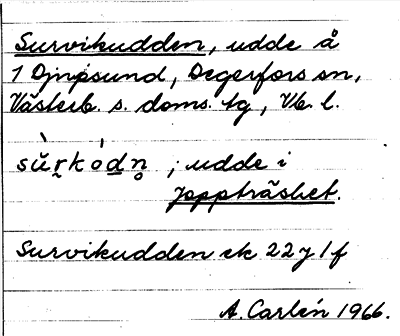 Survikudden, udde å
1 Djupsund, Degerfors sn,
Västerb. s. doms. tg, Vb. l.
sǜr̭kódn̥ ; udde i
Joppträsket.
Survikudden ek 22 y 1 f
A. Carlén 1966.